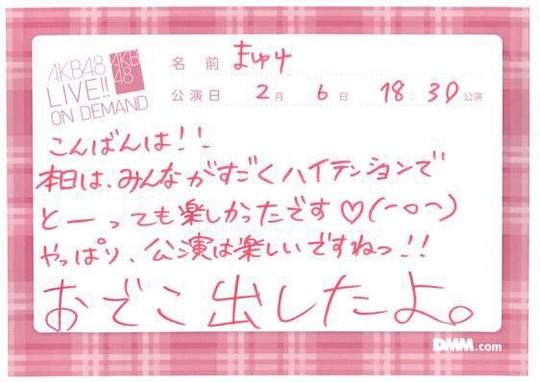 AKB48
LIVE!!
ON DEMAND
AKB
48
名前 まゆゆ
公演日 2月 6日 18:30公演
こんばんは!!
本日は、みんながすごくハイテンションで
とーっても楽しかったです♡(⌒o⌒)
やっぱり、公演は楽しいですねっ!!
おでこ出したよ。
DMM.com